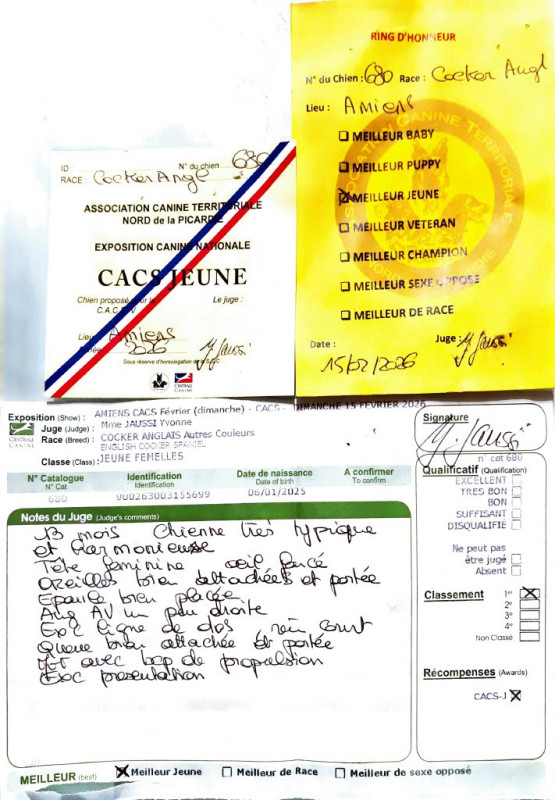 RING D'HONNEUR
N° du Chien : 680 Race : Cocker Angl
Lieu : Amiens
MEILLEUR BABY
MEILLEUR PUPPY
MEILLEUR JEUNE
MEILLEUR VETERAN
MEILLEUR CHAMPION
MEILLEUR SEXE OPPOSE
MEILLEUR DE RACE
Date : Juge : Y. Jaussi
15/02/2026
ASSOCIATION CANINE TERRITORIALE
ID : N° du chien 680
RACE : Cocker Angl
ASSOCIATION CANINE TERRITORIALE
NORD de la PICARDIE
EXPOSITION CANINE NATIONALE
CACS JEUNE
Chien proposé pour le Le juge :
C.A.C.
Lieu Amiens
2026 Y. Jaussi
Sous réserve d'homologation
CENTRALE CANINE
Exposition (Show) : AMIENS CACS Février (dimanche) - CACS - DIMANCHE 15 FEVRIER 2026
Juge (Judge) : Mme JAUSSI Yvonne
Race (Breed) : COCKER ANGLAIS Autres Couleurs
ENGLISH COCKER SPANIEL
Classe (Class) : JEUNE FEMELLES
CENTRALE CANINE
N° Catalogue Identification Date de naissance A confirmer
N° Cat Identification Date of birth To confirm
680 900263003155699 06/01/2025
Notes du Juge (Judge's comments)
13 mois Chienne très typique
et harmonieuse
Tête féminine oeil foncé
Oreilles bien attachées et portée
Epaule bien placée
Ang AV un peu droite
Exc ligne de dos rein court
Queue bien attachée et portée
avec bcp de propulsion
Exc presentation
Signature
Y. Jaussi
n° cat 680
Qualificatif (Qualification)
EXCELLENT
TRES BON
BON
SUFFISANT
DISQUALIFIE
Ne peut pas
être jugé
Absent
Classement 1er
2e
3e
4e
Non Classé
Récompenses (Awards)
CACS-J
MEILLEUR (best) Meilleur Jeune Meilleur de Race Meilleur de sexe opposé